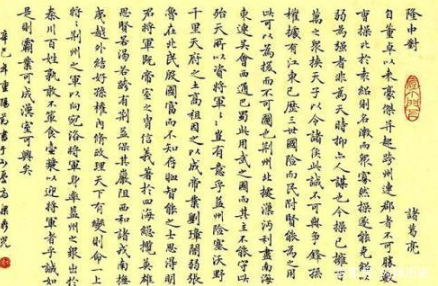 隆中對
諸葛亮
自董卓以來豪傑並起跨州連郡者不可勝數
曹操比於袁紹則名微而眾寡然操遂能克紹以
弱為強者非惟天時抑亦人謀也今操已擁百
萬之眾挾天子以令諸侯此誠不可與爭鋒孫
權據有江東已歷三世國險而民附賢能為之用
此可以為援而不可圖也荊州北據漢沔利盡南海
東連吳會西通巴蜀此用武之國而其主不能守此
殆天所以資將軍將軍豈有意乎益州險塞沃野
千里天府之土高祖因之以成帝業劉璋闇弱張
魯在北民殷國富而不知存恤智能之士思得明
君將軍既帝室之胄信義著於四海總攬英雄
思賢若渴若跨有荊益保其巖阻西和諸戎南撫
夷越外結好孫權內修政理天下有變則命一上
將將荊州之軍以向宛洛將軍身率益州之眾出於
秦川百姓孰敢不簞食壺漿以迎將軍者乎誠如
是則霸業可成漢室可興矣
辛巳年重陽